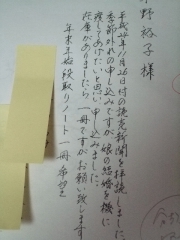 野裕子様
平成24年11月26日付の読売新聞を拝読しました
季節外れの申し込みですが娘の結婚を機に
渡してあげたいと思い申し込みました
在庫がありましたら一冊ですがお願い致します
年末年始段取りノート一冊希望